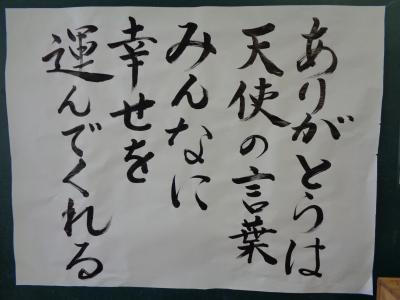 ありがとうは
天使の言葉
みんなに
幸せを
運んでくれる